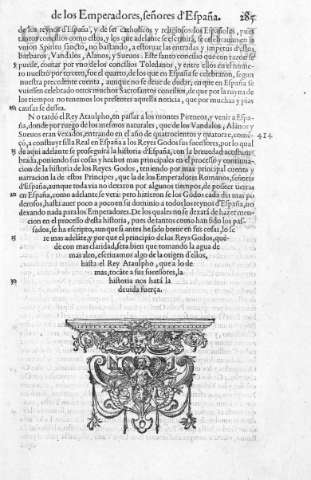 de los Emperadores, señores d'España. 285
de los reynos d'España, y de ser catholicos y religiosos los Españoles, pues
tantos concilios como estos, y los que adelante se escriuirà, se celebrauan en la
vnion Spiritu sancto, no bastando, a estoruar las entradas y impetus d'estos,
barbaros, Vandalos, Alanos, y Sueuos. Este santo concilio que con razon se
puede, contar por vno de los concilios Toledanos, y entre ellos en el nume-
ro nuestro por tercero, fue el quarto, de los que en España se celebraron, segun
nuestra peculiar cuenta, aunque no se deue de dudar, en que en España se
vuiessen celebrado otros muchos Sacrosantos concilios, de que por la
de los tiempos no tenemos los presentes aquella noticia, que por muchas y pias
causas se dessea.
No tardó el Rey Ataulpho, en passar a los montes Pyreneos, y venir a Espa-
ña, donde por ruego de los mesmos naturales, que de los Vandalos, Alanos y
Sueuos eran vexados, entrando en el año de quatrocientos y quatorze, comen- 414
çò, a constituyr silla Real en España a los Reyes Godos sus sucessores, por lo qual
de aqui adelante se proseguirà la historia d'España, con la breuedad acostum-
brada, poniendo sus cosas y hechos mas principales en el processo y continua-
cion de la historia de los Reyes Godos, teniendo por mas principal cuenta y
narracion la de estos Principes, que la de los Emperadores Romanos, señores
d'España, aunque todauia no dexaron por algunos tiempos, de posseer tierras
en España, como adelante se verá: pero hizieronse los Godos cada dia mas po-
derosos, hasta auer poco a poco en su dominio a todos los reynos d'España, no
dexando nada para los Emperadores. De los quales no se dexará de hazer men-
cion en el processo desta historia, pues de tantos como han sido los pas-
sados, se ha escripto, aunque si antes he sido breue en sus cosas, lo se
re mas adelãte, y por que el principio de los Reyes Godos, que-
de con mas claridad, sera bien que tomando la agua de
mas alto, escriuamos algo de la origen d'ellos,
hasta el Rey Ataulpho, que a lo de
mas, tocãte a sus sucessores, la
historia nos hará la
deuida fuerça.